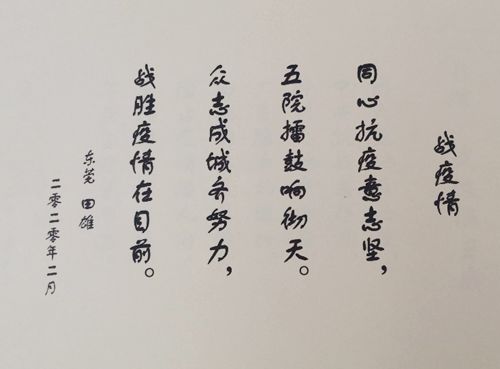 战疫情
同心抗疫意志坚，
五院擂鼓响彻天。
众志成城齐努力，
战胜疫情在目前。
东莞 田雄
二零二零年二月